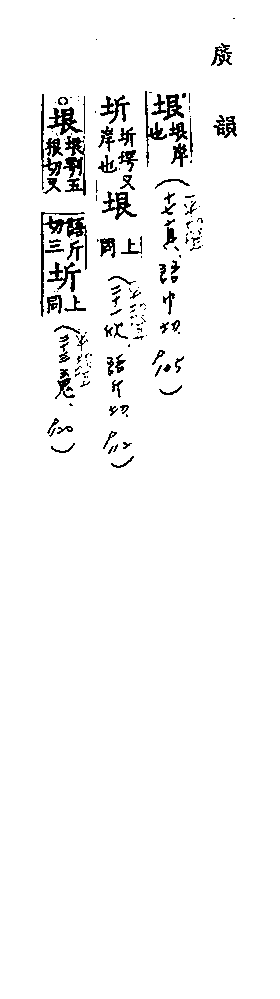 廣韻
垠垠岸也(十七真、語巾切、P.105)
圻圻堮又岸也垠上同(二十一欣、語斤切、P.112)
垠垠堮五根切又語斤切三圻上同(二十三魂、P.120)